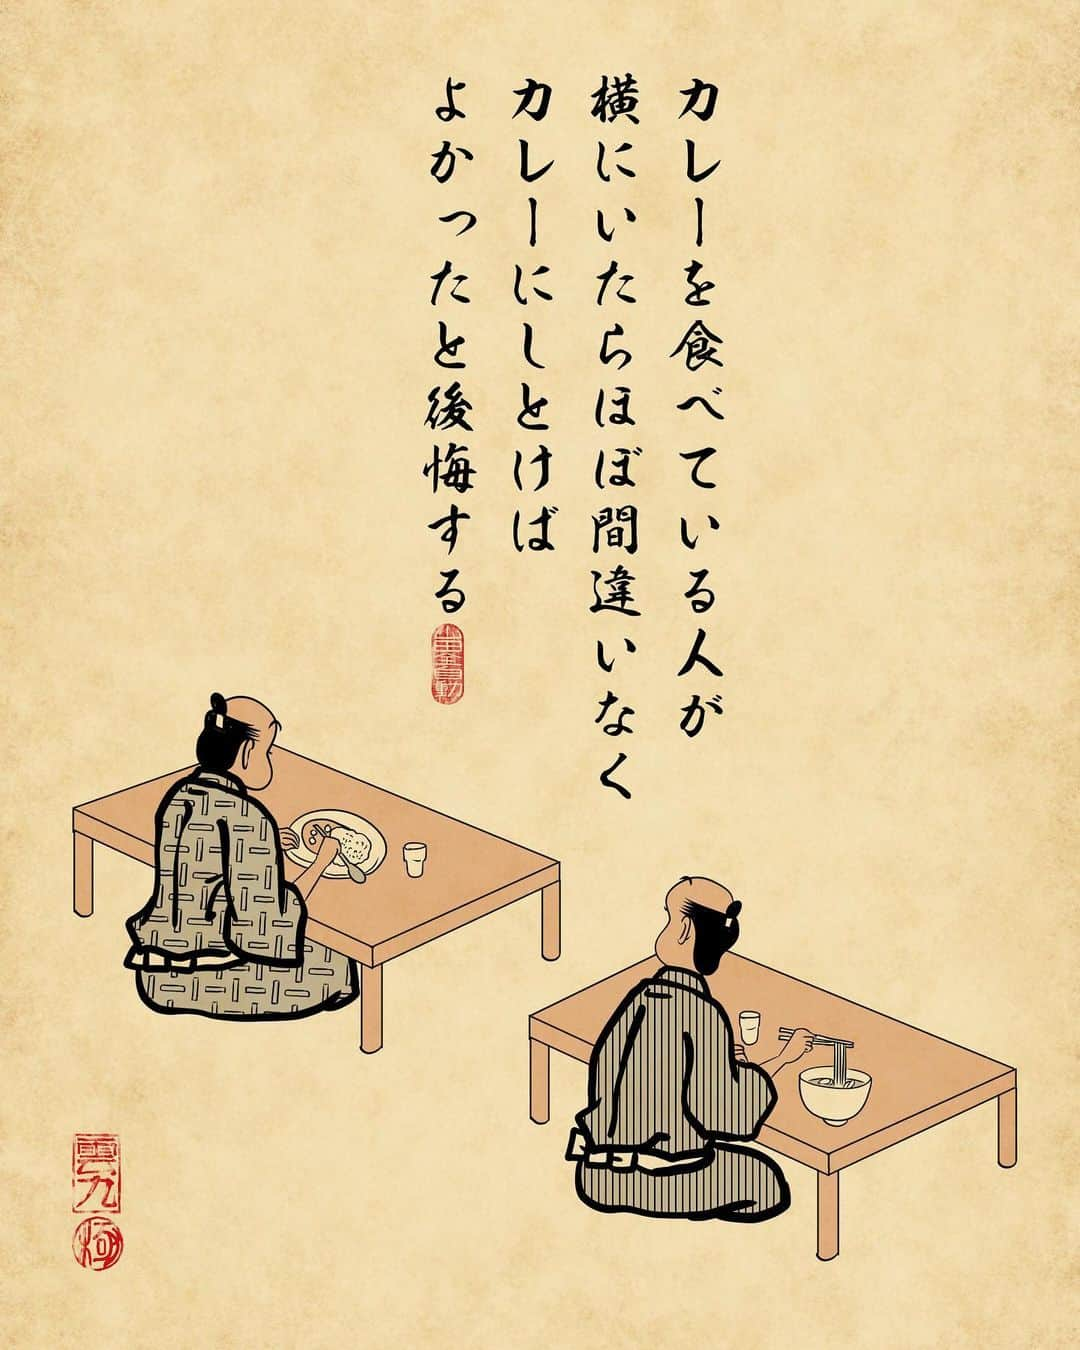 カレーを食べている人が
横にいたらほぼ間違いなく
カレーにしとけば
よかったと後悔する
山田全自動
雲九
極